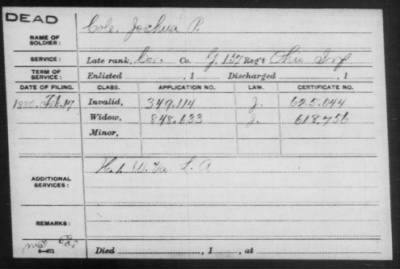 DEAD
NAME OF SOLDIER: Cole, Joshua P.
SERVICE: Late rank, Co. Reg't Ohio Inf
TERM OF SERVICE: Enlisted , 1 Discharged , 1
DATE OF FILING. CLASS. APPLICATION NO. LAW. CERTIFICATE NO.
Feb. 17 Invalid, 349.114 J.
Widow, 848.633 J. 618.756
Minor,
ADDITIONAL SERVICES:
REMARKS:
Died , 1 , at